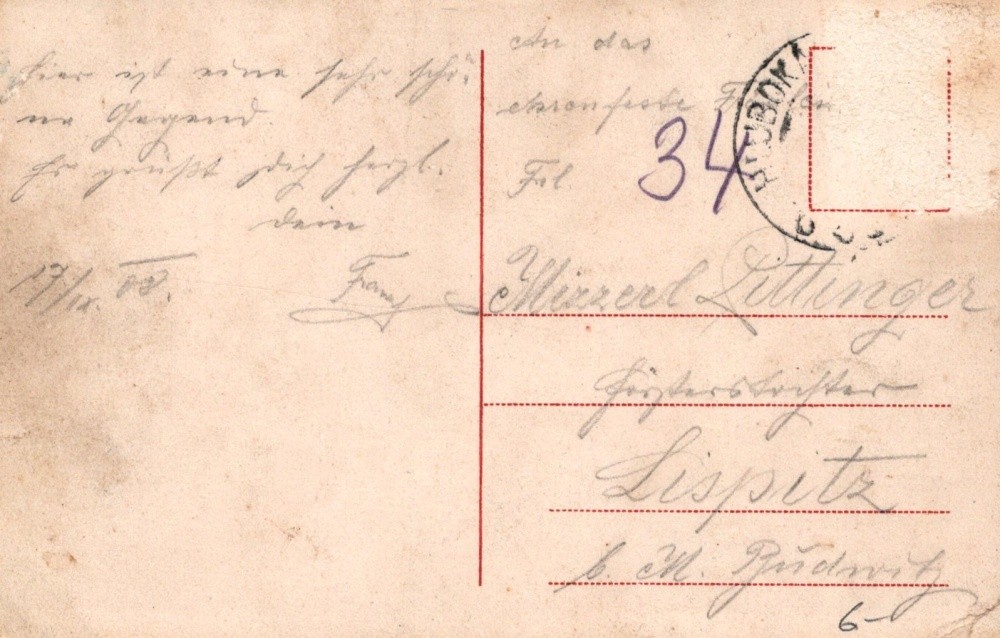 Hier ist eine sehr schö-
ne Gegend
Es grüßt dich herzl.
dein
17/IX. 08.
Franz
An das
ehrenfeste Fräulein
Frl.
34
HLUBOKÁ
Mizzerl Littinger
Försterstochter
Lispitz
b. M. Budwitz
6-